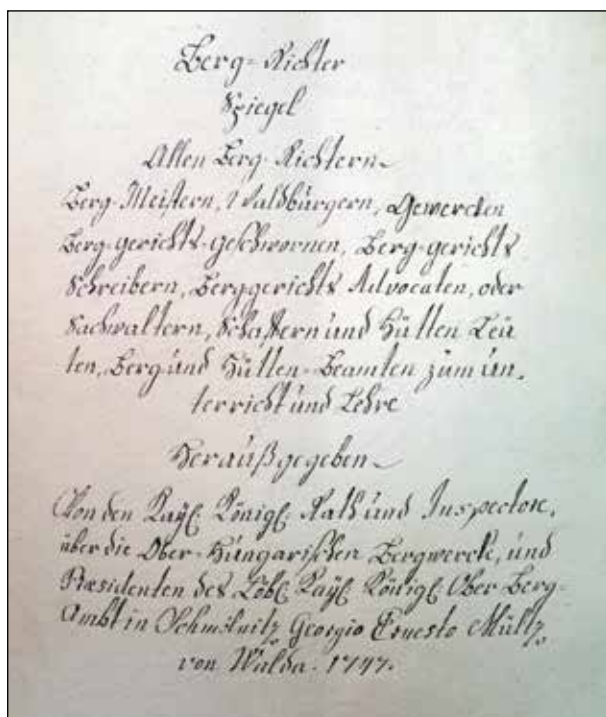 Berg-Richter
Spiegel
Allen Berg-Richtern
Berg-Meistern, Waldbürgern, Gewercken
Berg-gerichts-Geschwornen, Berg-gerichts
Schreibern, Berggerichts Advocaten, oder
Sachwaltern, Schaffern und Hütten Leü
ten, Berg und Hütten-Beamten zum un-
terricht und Lehre
Heraußgegeben
Von den Kaÿl. Königl. Rath und Inspectore,
über die Ober-Hungarischen Bergwercke, und
Præsidenten des Löbl. Kaÿl. Königl. Ober Berg-
Ambt in Schmölnitz Georgio Ernesto Multz
von Walda.